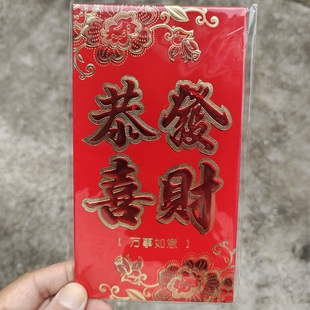 恭喜
發財
[ 万事如意 ]